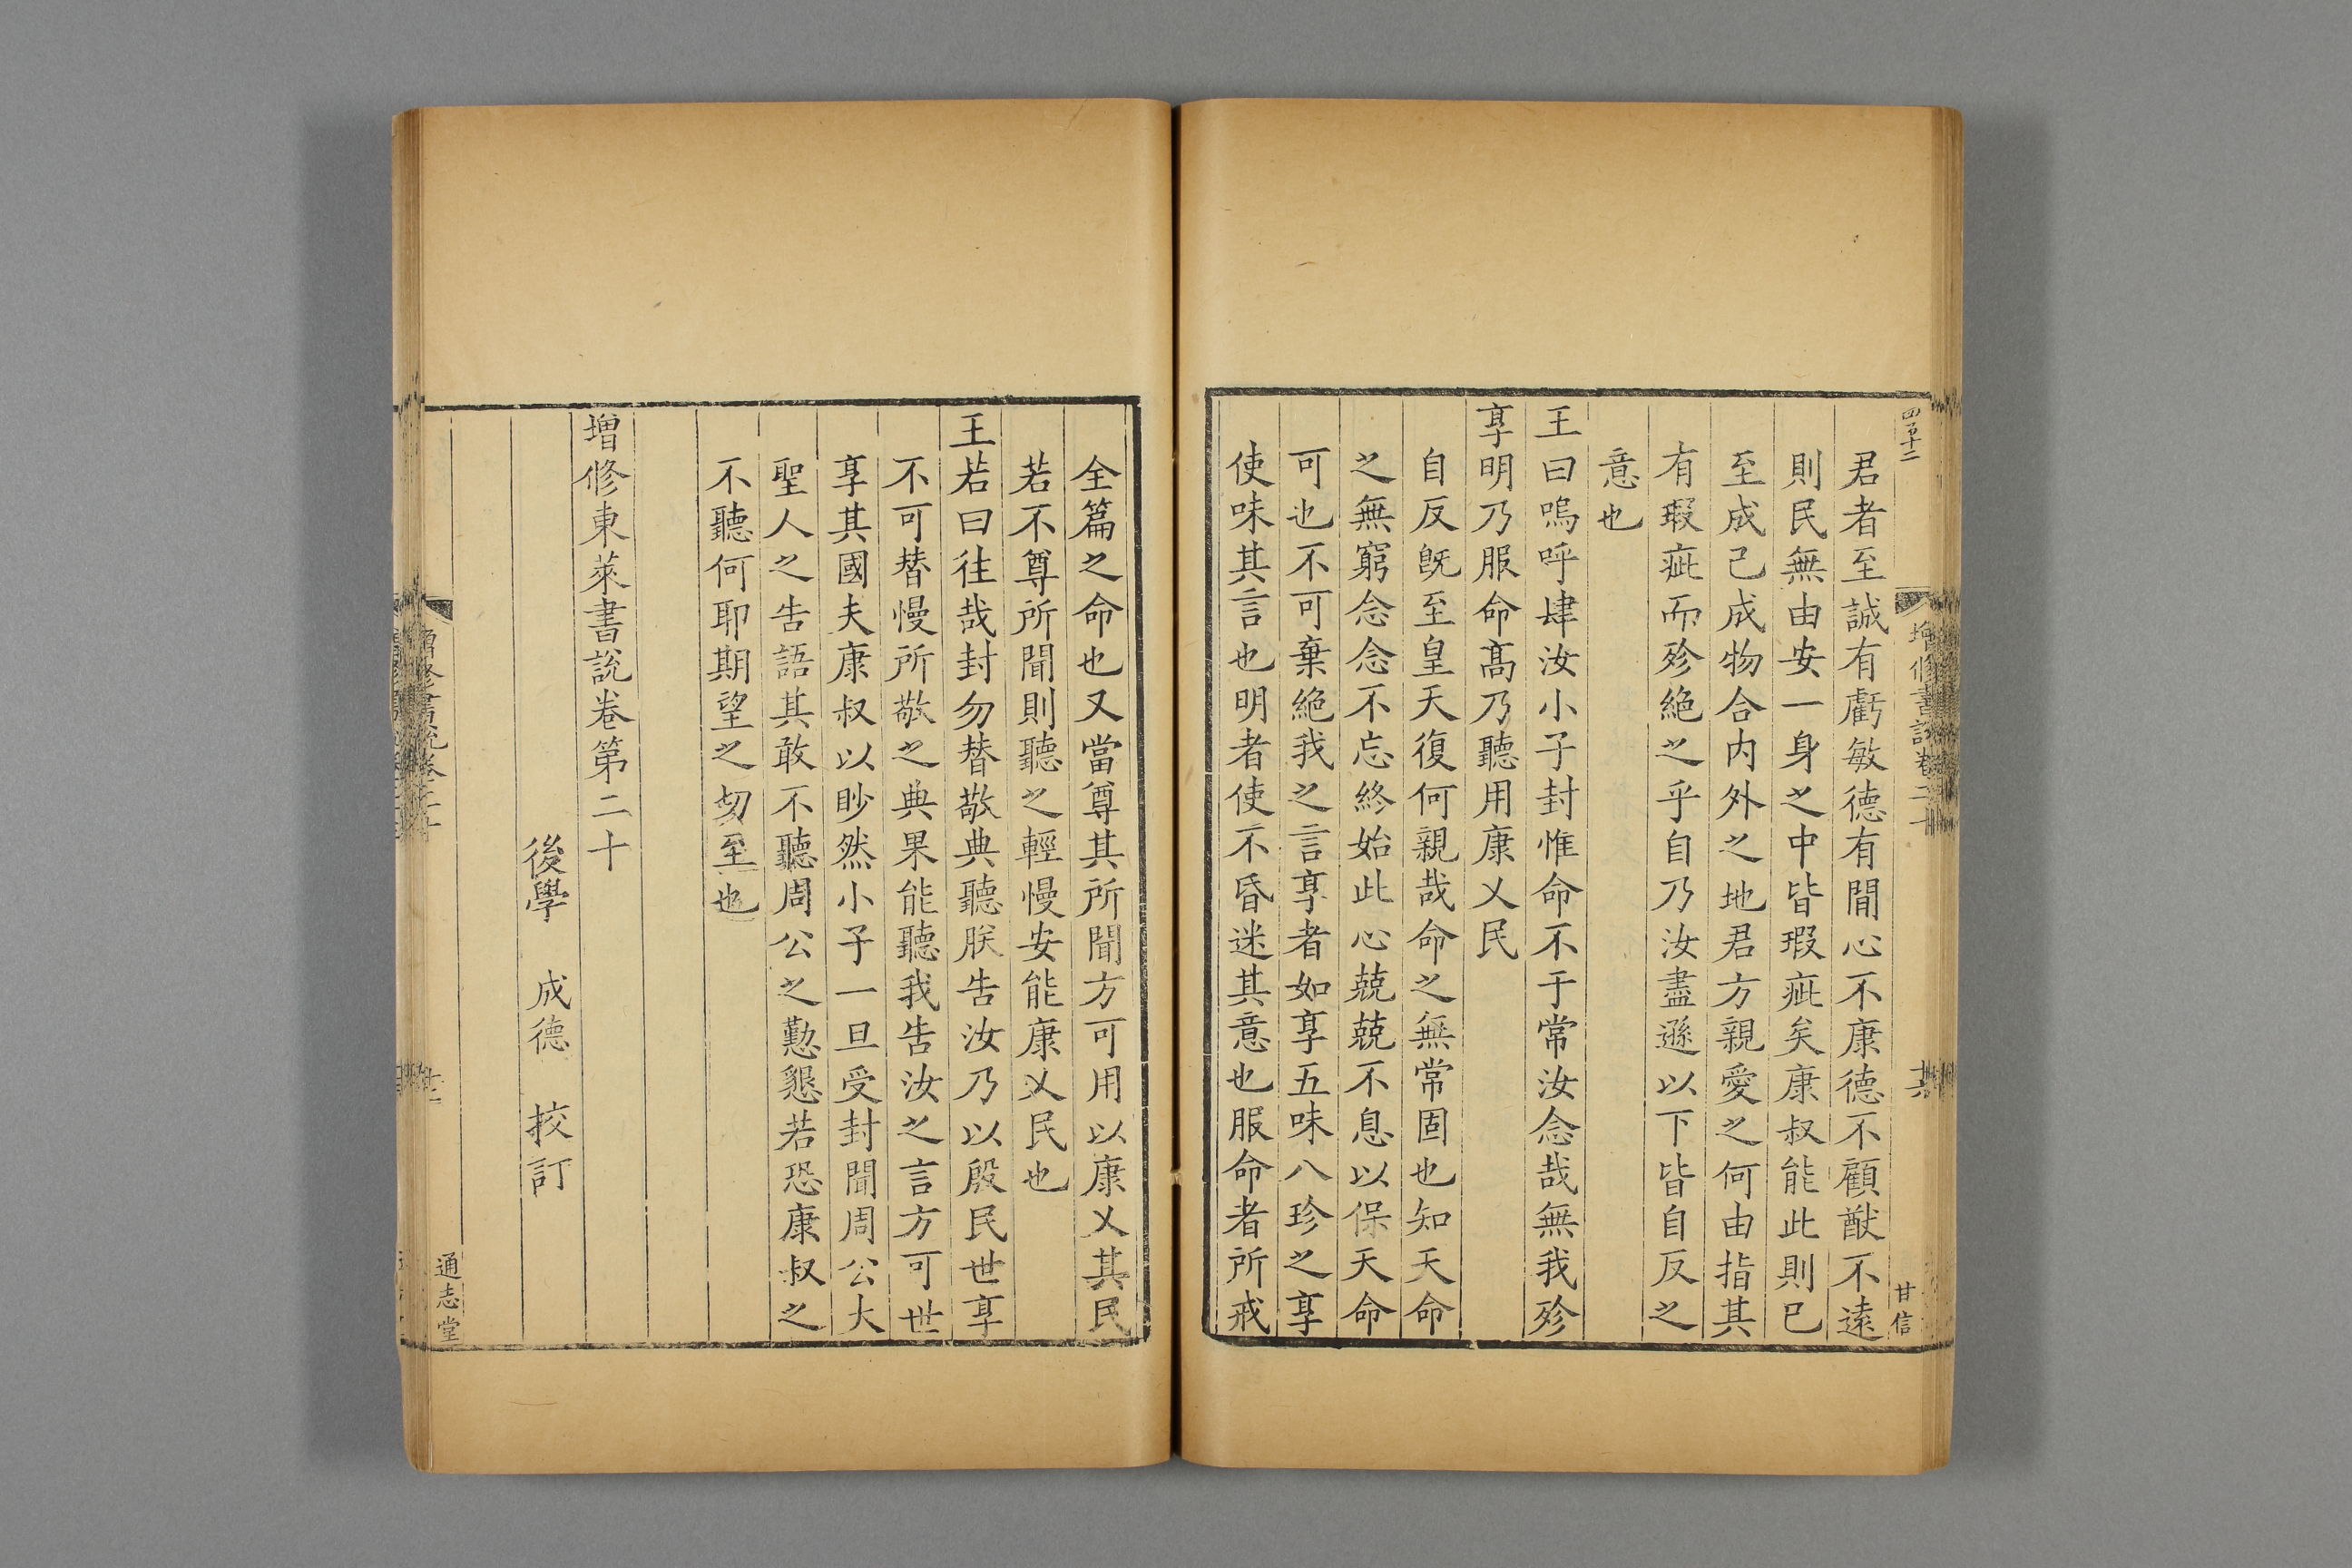 四百十二
增修書說卷二十
十六
甘信
君者至誠有虧敏德有閒心不康德不顧猷不遠
則民無由安一身之中皆瑕疵矣康叔能此則已
至成己成物合内外之地君方親愛之何由指其
有瑕疵而殄絶之乎自乃汝盡遜以下皆自反之
意也
王曰嗚呼肆汝小子封惟命不于常汝念哉無我殄
享明乃服命高乃聽用康乂民
自反旣至皇天復何親哉命之無常固也知天命
之無窮念念不忘終始此心兢兢不息以保天命
可也不可棄絶我之言享者如享五味八珍之享
使味其言也明者使不昏迷其意也服命者所戒
全篇之命也又當尊其所聞方可用以康乂其民
若不尊所聞則聽之輕慢安能康乂民也
王若曰往哉封勿替敬典聽朕告汝乃以殷民世享
不可替慢所敬之典果能聽我告汝之言方可世
享其國夫康叔以眇然小子一旦受封聞周公大
聖人之告語其敢不聽周公之懃懇若恐康叔之
不聽何耶期望之切至也
增修東萊書說卷第二十
後學 成德 挍訂
通志堂